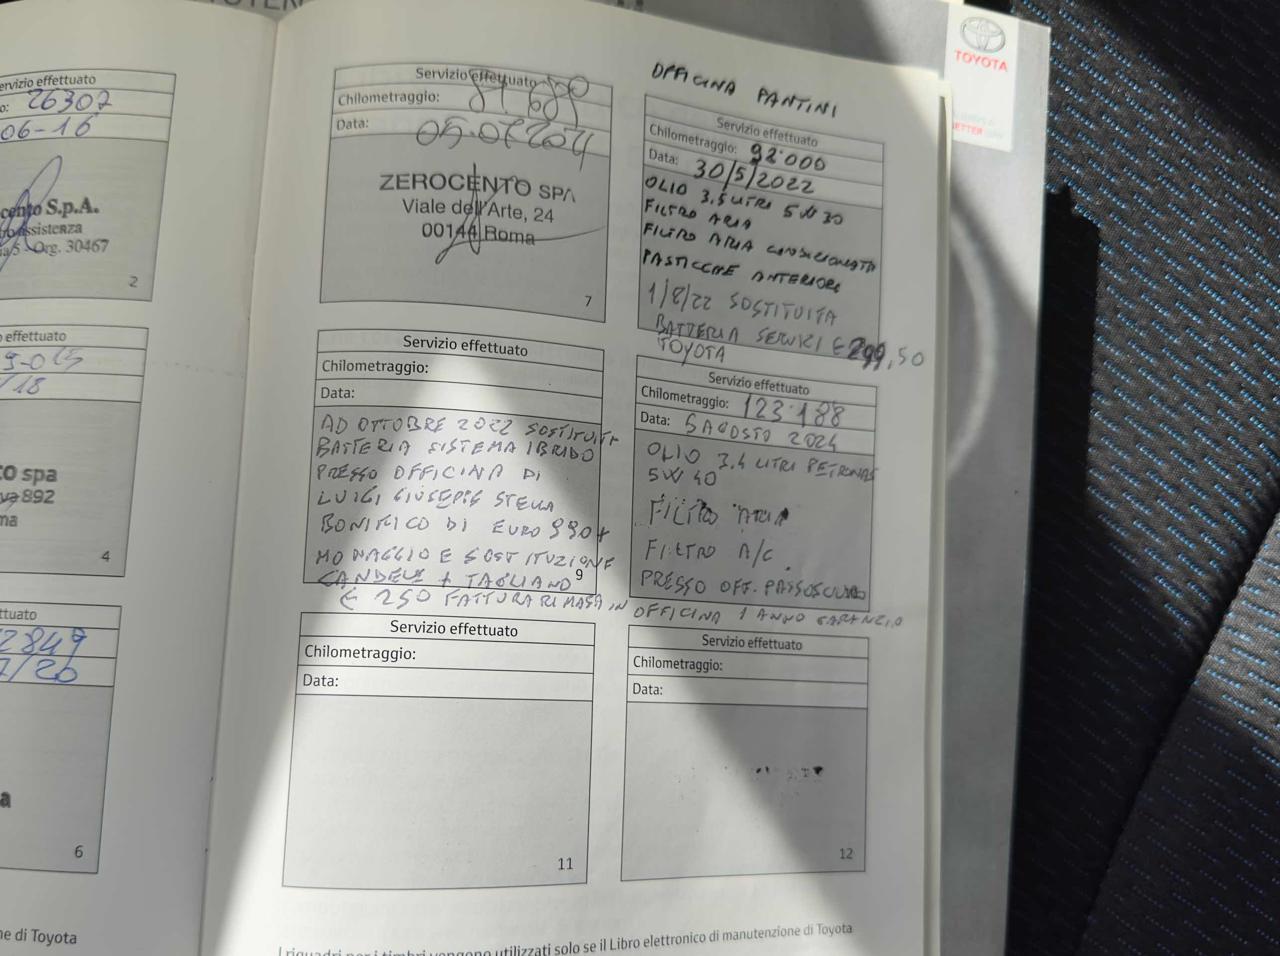 ervizio effettuato
o: 26307
06-16
cento S.p.A.
oassistenza
Org. 30467
2
effettuato
9-015
/18
to spa
892
ma
4
ttuato
2849
7/20
a
6
ne di Toyota
Servizio effettuato
Chilometraggio:
Data: 05.07
ZEROCENTO SPA
Viale dell'Arte, 24
00144 Roma
7
OFFICINA PANTINI
Servizio effettuato
Chilometraggio: 92.000
Data: 30/5/2022
OLIO 3,5 LITRI 5W30
FILTRO ARIA
FILTRO ARIA CONDIZIONATA
PASTICCHE ANTERIORI
1/8/22 SOSTITUITA
BATTERIA SERVIZI € 299,50
TOYOTA
Servizio effettuato
Chilometraggio:
Data:
AD OTTOBRE 2022 SOSTITUITA
BATTERIA SISTEMA IBRIDO
PRESSO OFFICINA DI
LUIGI GIUSEPPE STELLA
BONIFICO DI EURO 990+
MONAGGIO E SOSTITUZIONE
CANDELE + TAGLIANDO
9
€ 250 FATTURA RIMASA IN OFFICINA 1 ANNO GARANZIA
Servizio effettuato
Chilometraggio: 123.188
Data: 5 AGOSTO 2024
OLIO 3.4 LITRI PETRONAS
5W40
FILTRO ARIA
FILTRO A/C
PRESSO OFF. PASSOSCURO
Servizio effettuato
Chilometraggio:
Data:
11
Servizio effettuato
Chilometraggio:
Data:
12
I riquadri per i timbri vengono utilizzati solo se il Libro elettronico di manutenzione di Toyota
TOYOTA